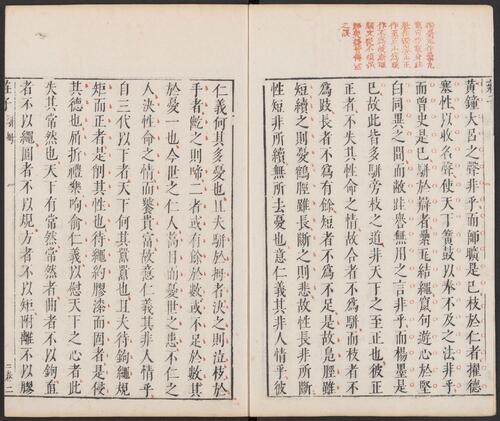 黃鐘大呂之聲非乎而師曠是已枝於仁者擢德
塞性以收名聲使天下簧鼓以奉不及之法非乎
而曾史是已駢於辯者纍瓦結繩竄句遊心於堅
白同異之間而敝跬譽無用之言非乎而楊墨是
已故此皆多駢旁枝之道非天下之至正也彼正
正者不失其性命之情故合者不爲駢而枝者不
爲跂長者不爲有餘短者不爲不足是故鳧脛雖
短續之則憂鶴脛雖長斷之則悲故性長非所斷
性短非所續無所去憂也意仁義其非人情乎彼
仁義何其多憂也且夫駢於拇者決之則泣枝於
手者齕之則啼二者或有餘於數或不足於數其
於憂一也今世之仁人蒿目而憂世之患不仁之
人決性命之情而饕貴富故意仁義其非人情乎
自三代以下者天下何其囂囂也且夫待鉤繩規
矩而正者是削其性也待繩約膠漆而固者是侵
其德也屈折禮樂呴俞仁義以慰天下之心者此
失其常然也天下有常然常然者曲者不以鉤直
者不以繩圓者不以規方者不以矩附離不以膠
莊子